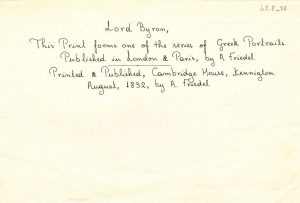 Lord Byron,
This Print forms one of the series of Greek Portraits
Published in London & Paris, by A. Friedel.
Printed & Published, Cambridge House, Kennington
August, 1832, by A. Friedel.